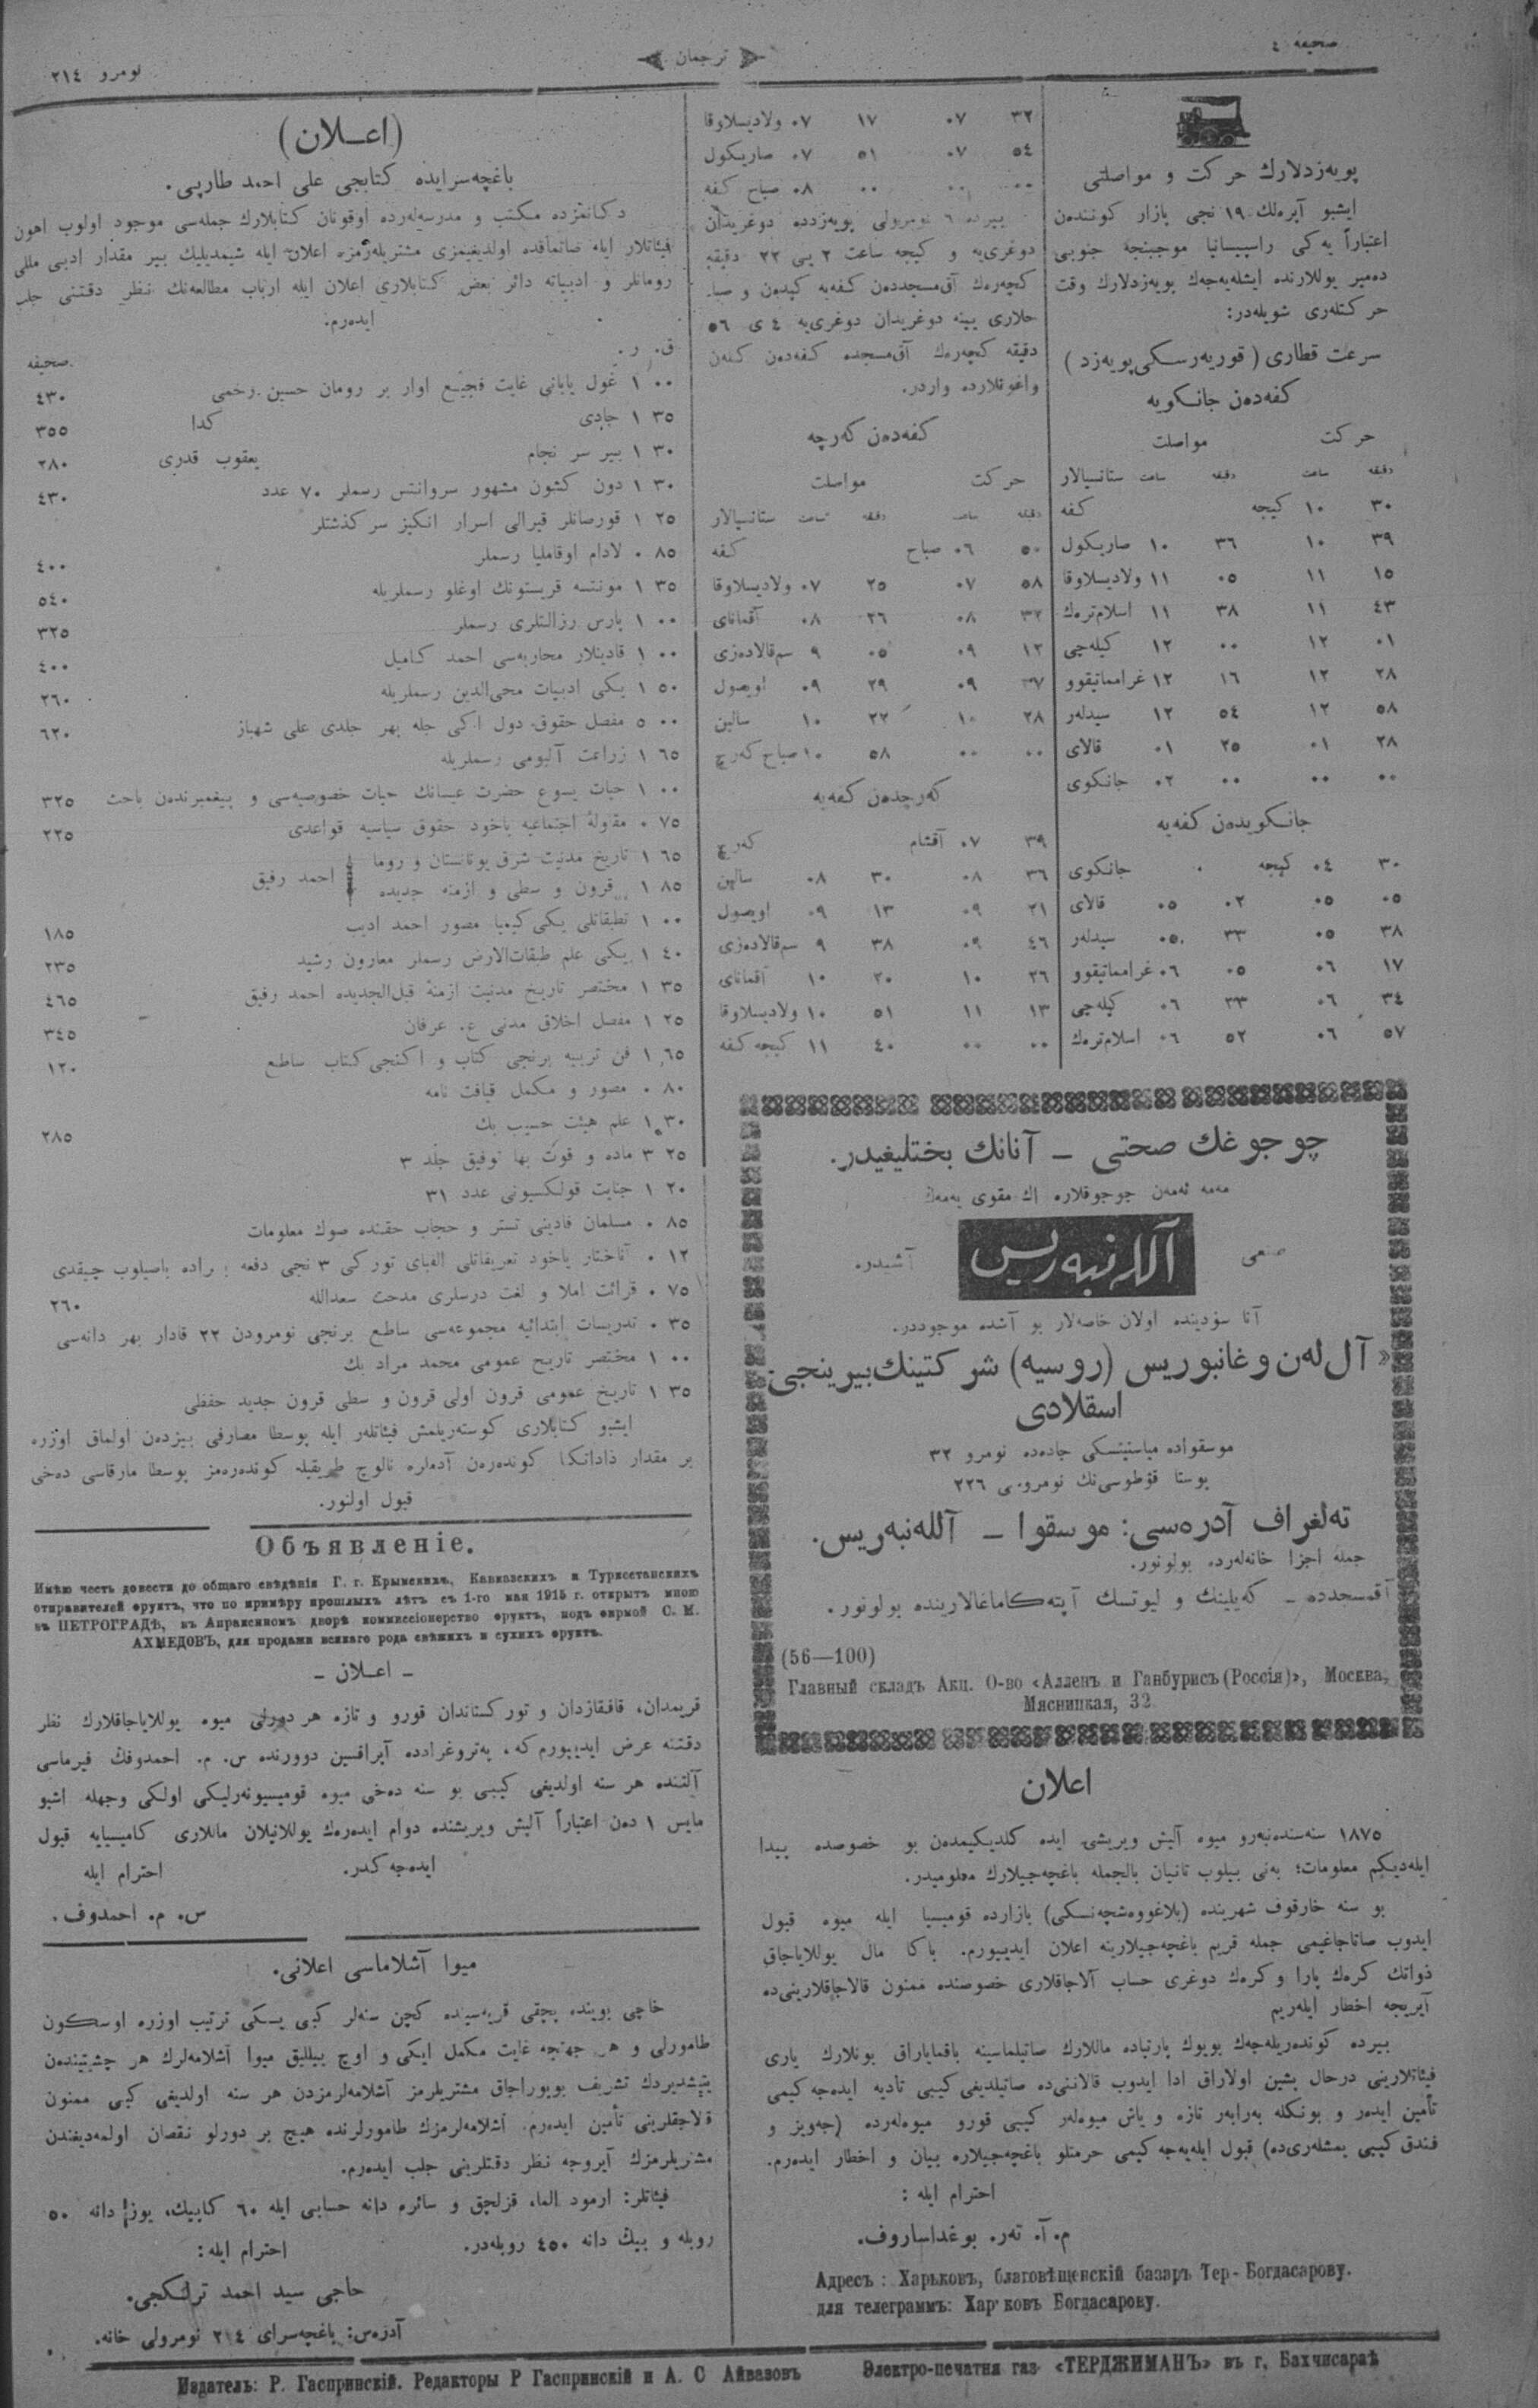 صحيفه ٤
ترجمان
نومرو ٢١٤
پويه‌زدلارك حركت و مواصلتى
ايشبو آپره‌لك ١٩ نجى بازار كونندن
اعتباراً يه‌كى راسپيسانيا موجبنجه جنوبى
ده‌مير يوللارنده ايشله‌يه‌جك پويه‌زدلارك وقت
حركتله‌رى شويله‌در:
سرعت قطارى (قوريه‌رسكى پويه‌زد)
كفه‌دن جانكويه
حركت مواصلت
دقيقه ساعت دقيقه ساعت ستانسيالار
٣٠ ١٠ كيجه كفه
٣٩ ١٠ ٣٦ ١٠ صاريكول
١٥ ١١ ٠٥ ١١ ولاديسلاوقا
٤٣ ١١ ٣٨ ١١ اسلام‌ترك
٠١ ١٢ ٠٠ ١٢ كيله‌چى
٢٨ ١٢ ١٦ ١٢ غراماتيقوو
٥٨ ١٢ ٥٤ ١٢ سيدلر
٢٨ ٠١ ٢٥ ٠١ قالاى
٠٠ ٠٠ ٠٠ ٠٢ جانكوى
جانكويدن كفه‌يه
٣٠ ٠٤ كيجه جانكوى
٠٥ ٠٥ ٠٢ ٠٥ قالاى
٣٨ ٠٥ ٣٣ ٠٥ سيدلر
١٧ ٠٦ ٠٥ ٠٦ غراماتيقوو
٣٤ ٠٦ ٣٣ ٠٦ كيله‌چى
٥٧ ٠٦ ٥٢ ٠٦ اسلام‌ترك
٣٢ ٠٧ ١٧ ٠٧ ولاديسلاوقا
٥٤ ٠٧ ٥١ ٠٧ صاريكول
٠٠ ٠٠ ٠٠ ٠٨ صباح كفه
بيرده ٦ نومرولى پويه‌زدده دوغريدان
دوغرى‌يه و كيجه ساعت ٢ يى ٢٢ دقيقه
كچه‌رك آق‌مسجددن كفه‌يه كيدن و صبا-
حلارى يينه دوغريدان دوغرى‌يه ٤ ى ٥٦
دقيقه كچه‌رك آق‌مسجده كفه‌دن كلن
واغونلارده واردر.
كفه‌دن كرچه
حركت مواصلت
دقيقه ساعت دقيقه ساعت ستانسيالار
٥٠ ٠٦ صباح كفه
٥٨ ٠٧ ٢٥ ٠٧ ولاديسلاوقا
٣٢ ٠٨ ٢٦ ٠٨ آقماناى
١٢ ٠٩ ٠٥ ٩ سم‌قالادزى
٣٧ ٠٩ ٢٩ ٠٩ اويصول
٢٨ ١٠ ٢٢ ١٠ سالين
٠٠ ٠٠ ٥٨ ١٠ صباح كرچ
كرچدن كفه‌يه
٣٩ ٠٧ آقشام كرچ
٣٦ ٠٨ ٣٠ ٠٨ سالين
٢١ ٠٩ ١٣ ٠٩ اويصول
٤٦ ٠٩ ٣٨ ٩ سم‌قالادزى
٢٦ ١٠ ٢٠ ١٠ آقماناى
١٣ ١١ ٥١ ١٠ ولاديسلاوقا
٠٠ ٠٠ ٤٠ ١١ كيجه كفه
چوجوغك صحتى — آنانك بختليغيدر.
مه‌مه ئه‌مه‌ن چوجوقلاره اك مقوى يه‌مه‌ك
صنعى آلله‌نبه‌ريس آشيدر.
آنا سؤدينده اولان خاصه‌لار بو آشده موجوددر.
«آل‌له‌ن و غانبوريس (روسيه) شركتينك بيرينجى
اسقلادى
موسقواده مياسنيتسكى جاده‌ده نومرو ٣٢
پوستا قؤطوسى‌نك نومروسى ٢٢٦
ته‌لغراف آدره‌سى: موسقوا — آلله‌نبه‌ريس.
جمله اجزا خانه‌لرده بولونور.
آقمسجدده — كه‌يلينك و ليوتسك آپته‌كاماغالارينده بولونور.
(56—100)
Главный складъ Акц. О-во «Алленъ и Ганбурисъ (Россія)», Москва,
Мясницкая, 32
اعلان
١٨٧٥ سنه‌سنده‌نبه‌رو ميوه آليش ويريشى ايده كلديكيمدن بو خصوصده پيدا
ايله‌ديكم معلومات؛ به‌نى بيلوب تانيان بالجمله باغچه‌جيلارك معلوميدر.
بو سنه خارقوف شهرينده (بلاغووه‌شچه‌نسكى) بازارده قوميسيا ايله ميوه قبول
ايدوب صاتاجاغيمى جمله قريم باغچه‌جيلارينه اعلان ايدييورم. باكا مال يوللاياجاق
ذواتك كرك پارا و كرك دوغرى حساب آلاجاقلارى خصوصنده ممنون قالاجاقلارينى‌ده
آيريجه اخطار ايله‌ريم
بيرده كونده‌ريله‌جك بويوك پارتياده ماللارك صاتيلماسينه باقماياراق بونلارك يارى
فيئاتلارينى درحال پشين اولاراق ادا ايدوب قالاننى‌ده صاتيلديغى كيبى تأديه ايده‌جه‌كيمى
تأمين ايدر و بونكله به‌رابه‌ر تازه و ياش ميوه‌لر كيبى قورو ميوه‌لرده (جه‌ويز و
فندق كيبى يمشله‌رى‌ده) قبول ايله‌يه‌جه‌كيمى حرمتلو باغچه‌جيلاره بيان و اخطار ايده‌رم.
احترام ايله:
م. آ. ته‌ر. بوغداساروف.
Адресъ: Харьковъ, благовѣщенскій базаръ Тер-Богдасарову.
для телеграммъ: Харьковъ Богдасарову.
(اعـلان)
باغچه‌سرايده كتابجى على احمد طارپى.
دكانمزده مكتب و مدرسه‌لرده اوقونان كتابلارك جمله‌سى موجود اولوب اهون
فيئاتلار ايله صاتماقده اولديغمزى مشتريله‌رمزه اعلان ايله شيمديليك بير مقدار ادبى مللى
رومانلر و ادبياته دائر بعض كتابلارى اعلان ايله ارباب مطالعه‌نك نظر دقتنى جلب
ايده‌رم.
ق. ر. صحيفه
٠٠ ١ غول يابانى غايت فجيع اوار بر رومان حسين رحمى ٤٣٠
٣٥ ١ جادى كذا ٣٥٥
٣٠ ١ بير سر نجام يعقوب قدرى ٢٨٠
٣٠ ١ دون كشون مشهور سروانتس رسملر ٧٠ عدد ٤٣٠
٢٥ ١ قورصانلر قيرالى اسرار انكيز سركذشتلر
٨٥ ٠ لادام اوقامليا رسملر ٤٠٠
٣٥ ١ مونتسه قريستونك اوغلو رسملريله ٥٤٠
٠٠ ١ پارس رزالتلرى رسملر ٣٢٥
٠٠ ١ قادينلار محاربه‌سى احمد كاميل ٤٠٠
٥٠ ١ يكى ادبيات محى‌الدين رسملريله ٢٦٠
٠٠ ٥ مفصل حقوق دول اكى جله بهر جلدى على شهباز ٦٢٠
٦٥ ١ زراعت آلبومى رسملريله
٠٠ ١ حيات يسوع حضرت عيسانك حيات خصوصيه‌سى و پيغمبرندن باحث ٣٢٥
٧٥ ٠ مقاولهٔ اجتماعيه ياخود حقوق سياسيه قواعدى ٢٢٥
٦٥ ١ تاريخ مدنيت شرق يونانستان و روما
٨٥ ١ قرون و سطى و ازمنه جديده احمد رفيق
٠٠ ١ تطبقاتلى يكى كيميا مصور احمد اديب ١٨٥
٤٠ ١ يكى علم طبقات‌الارض رسملر معارون رشيد ٢٣٥
٣٥ ١ مختصر تاريخ مدنيت ازمنهٔ قبل‌الجديده احمد رفيق ٤٦٥
٢٥ ١ مفصل اخلاق مدنى ع. عرفان ٣٤٥
٦٥ ١ فن تربيه برنجى كتاب و اكنجى كتاب ساطع ١٢٠
٨٠ ٠ مصور و مكمل قيافت نامه
٣٠ ١ علم هيئت حسيب بك ٢٨٥
٢٥ ٣ ماده و قوت بها توفيق جلد ٣
٢٠ ١ جنايت قولكسيونى عدد ٣١
٨٥ ٠ مسلمان قادينى تستر و حجاب حقنده صوك معلومات
١٢ ٠ آناختار ياخود تعريفاتلى الفباى توركى ٣ نجى دفعه باصيلوب چيقدى
٧٥ ٠ قرائت املا و لغت درسلرى مدحت سعدالله ٢٦٠
٣٥ ٠ تدريسات ابتدائيه مجموعه‌سى ساطع برنجى نومرودن ٢٢ قادار بهر دانه‌سى
٠٠ ١ مختصر تاريخ عمومى محمد مراد بك
٣٥ ١ تاريخ عمومى قرون اولى قرون و سطى قرون جديد حفظى
ايشبو كتابلارى كوسته‌ريلمش فيئاتلر ايله پوسطا مصارفى بيزدن اولماق اوزره
بر مقدار ذاداتكا كونده‌رن آدملره نالوج طريقيله كونده‌ره‌مز پوسطا مارقاسى ده‌خى
قبول اولنور.
Объявленіе.
Имѣю честь довести до общаго свѣдѣнія Г. г. Крымскихъ, Кавказскихъ и Туркестанскихъ
отправителей фруктъ, что по примѣру прошлыхъ лѣтъ съ 1-го мая 1915 г. открытъ мною
въ ПЕТРОГРАДѢ, въ Апраксиномъ дворѣ коммиссіонерство фруктъ, подъ фирмой С. М.
АХМЕДОВЪ, для продажи всякаго рода свѣжихъ и сухихъ фруктъ.
— اعـلان —
قريمدان، قافقازدان و توركستاندان قورو و تازه هر دورلى ميوه يوللاياجاقلارك نظر
دقتنه عرض ايدييورم كه، په‌تروغرادده آپراقسين دوورنده س. م. احمدوفك فيرماسى
آلتنده هر سنه اولديغى كيبى بو سنه ده‌خى ميوه قوميسيونه‌رليكى اولكى وجهله اشبو
مايس ١ دن اعتباراً آليش ويريشنده دوام ايده‌رك يوللانيلان ماللارى كاميسيايه قبول
ايده‌جه‌كدر. احترام ايله
س. م. احمدوف.
ميوا آشلاماسى اعلانى.
خاچى بوينده پچقى قريه‌سيده كچن سنه‌لر كبى يسكى ترتيب اوزره اوسكون
طامورلى و هر جهتجه غايت مكمل ايكى و اوچ ييلليق ميوا آشلامه‌لرك هر چشيتيندن
يتشديردك تشريف بويوراجاق مشتريلرمز آشلامه‌لرمزدن هر سنه اولديغى كبى ممنون
قلاجقلرينى تأمين ايده‌رم. آشلامه‌لرمزك طامورلرنده هيچ بر دورلو نقصان اولمه‌ديغندن
مشتريلرمزك آيروجه نظر دقتلرينى جلب ايده‌رم.
فيئاتلر: ارمود الما، قزلچق و سائره دانه حسابى ايله ٦٠ كاپيك، يوز دانه ٥٠
روبله و بيڭ دانه ٤٥٠ روبله‌در. احترام ايله:
حاجى سيد احمد ترلكجى.
آدره‌س: باغچه‌سراى ٢١٤ نومرولى خانه.
Издатель: Р. Гаспринскій. Редакторы Р Гаспринскій и А. С Айвазовъ
Электро-печатня газ «ТЕРДЖИМАНЪ» въ г. Бахчисараѣ